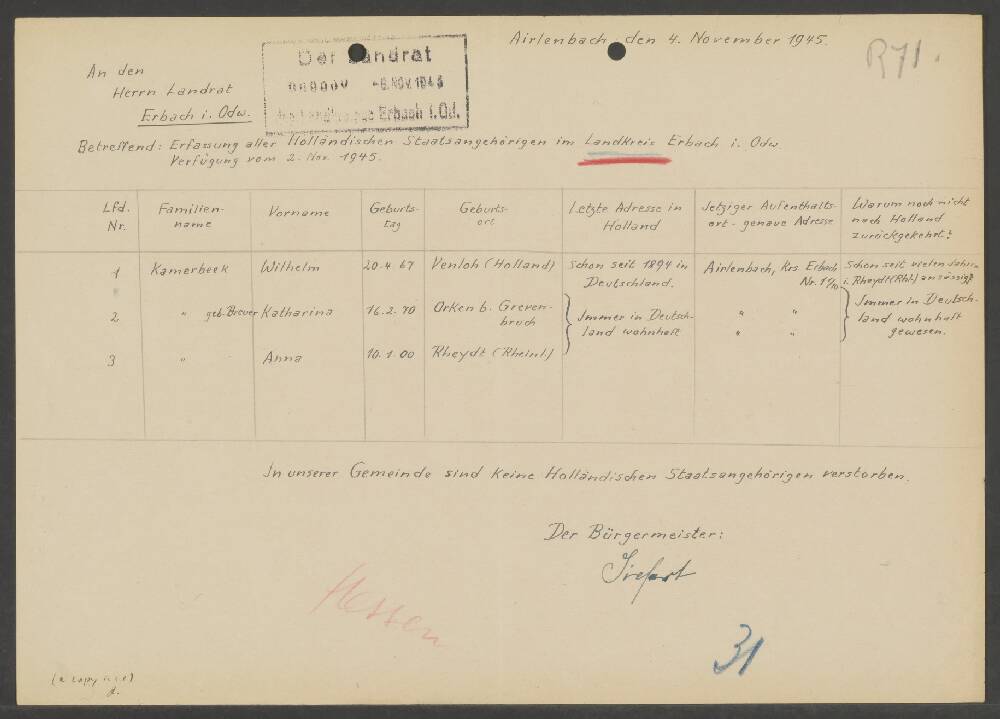 Airlenbach, den 4. November 1945.
R71.
An den
Herrn Landrat
Erbach i. Odw.
Der Landrat
-6. NOV. 1945
Erbach i. Od.
Betreffend: Erfassung aller Holländischen Staatsangehörigen im Landkreis Erbach i. Odw.
Verfügung vom 2. Nov. 1945.
Lfd. Nr.
Familien-name
Vorname
Geburts-tag
Geburts-ort
Letzte Adresse in Holland
Jetziger Aufenthalts-ort - genaue Adresse
Warum noch nicht nach Holland zurückgekehrt?
1 Kamerbeek Wilhelm 20.4.67 Venloh (Holland) Schon seit 1894 in Deutschland. Airlenbach, Krs. Erbach Schon seit vielen Jahren i. Rheydt (Rhl.) ansässig
2 " geb. Breuer Katharina 16.2.70 Orken b. Greven-bruch Immer in Deutsch-land wohnhaft " " Immer in Deutsch-land wohnhaft gewesen.
3 " Anna 10.1.00 Rheydt (Rheinl.) " "
In unserer Gemeinde sind keine Holländischen Staatsangehörigen verstorben.
Der Bürgermeister:
Hessen
31